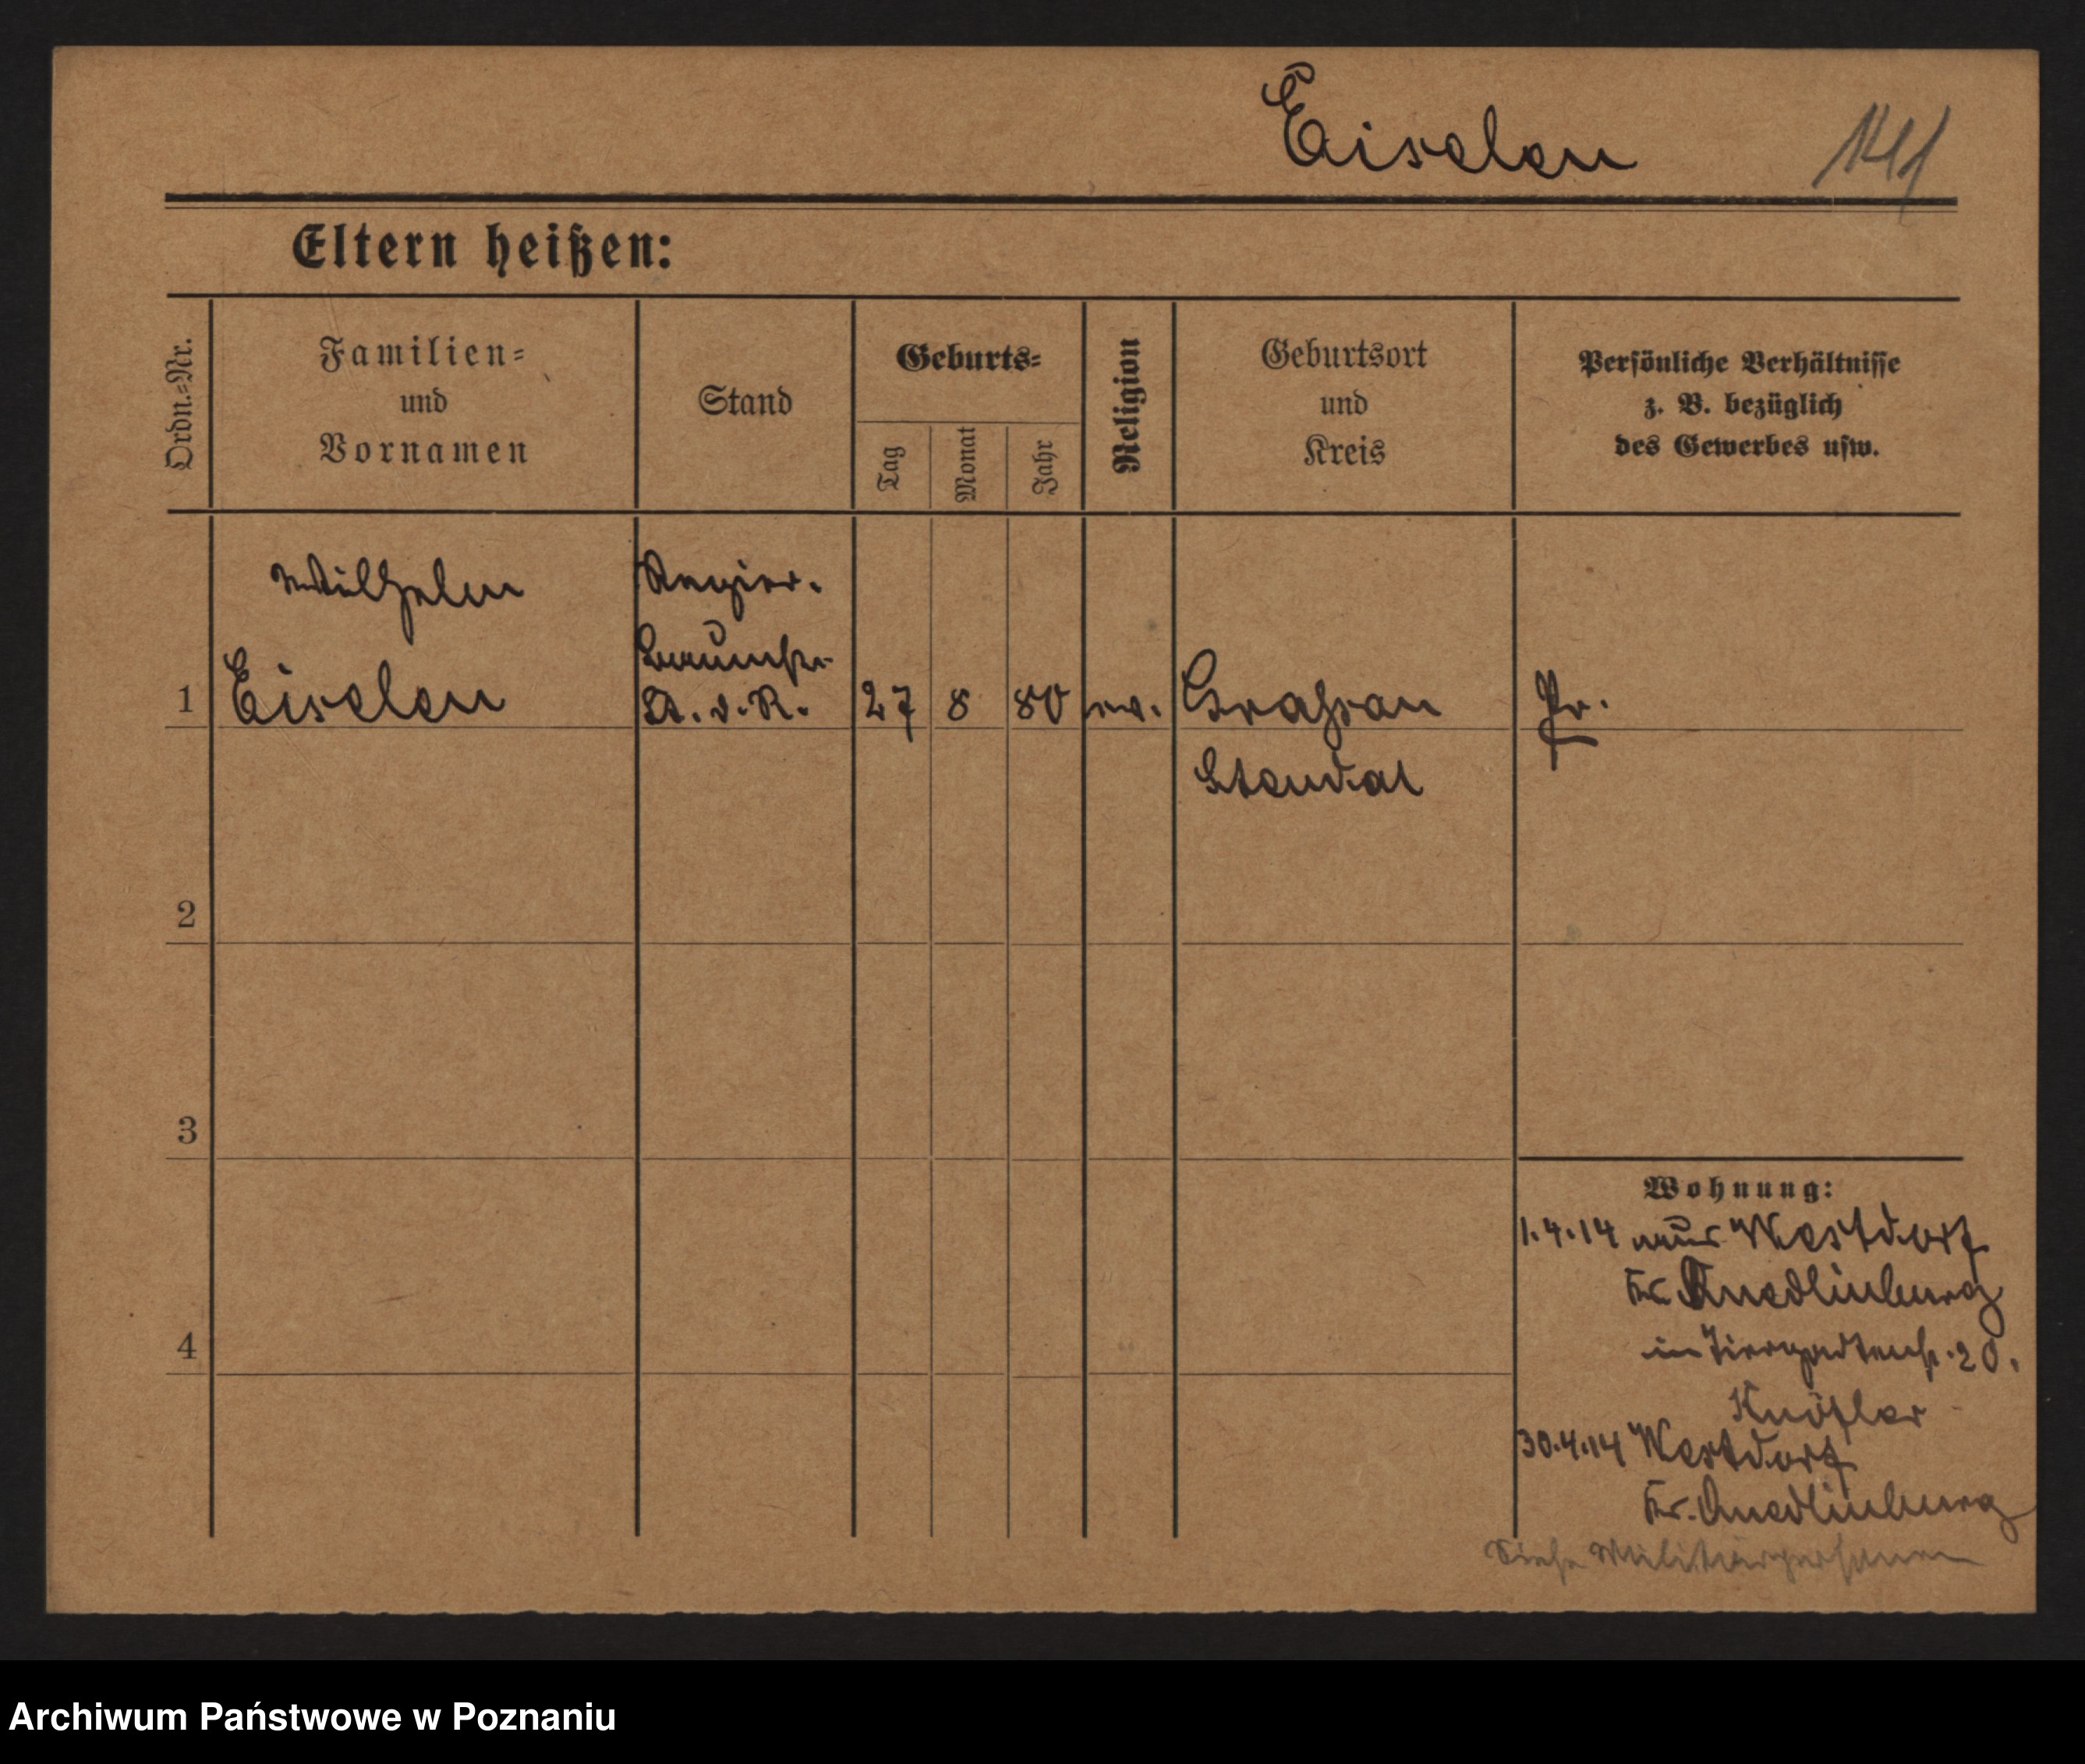 Eiselen
141
Eltern heißen:
Ordn.=Nr.
Familien=
und
Vornamen
Stand
Geburts=
Tag
Monat
Jahr
Religion
Geburtsort
und
Kreis
Persönliche Verhältnisse
z. B. bezüglich
des Gewerbes usw.
Wilhelm
Regier.
Baumstr.
Eiselen
Lt. d. R.
1
27
8
80
ev.
Grassau
Pr.
Stendal
2
3
4
Wohnung:
1.4.14 aus Westdorf
Kr. Quedlinburg
in Tiergartenstr. 20.
Knöfler
30.4.14 Westdorf
Kr. Quedlinburg
Siehe Militärpersonen
Archiwum Państwowe w Poznaniu